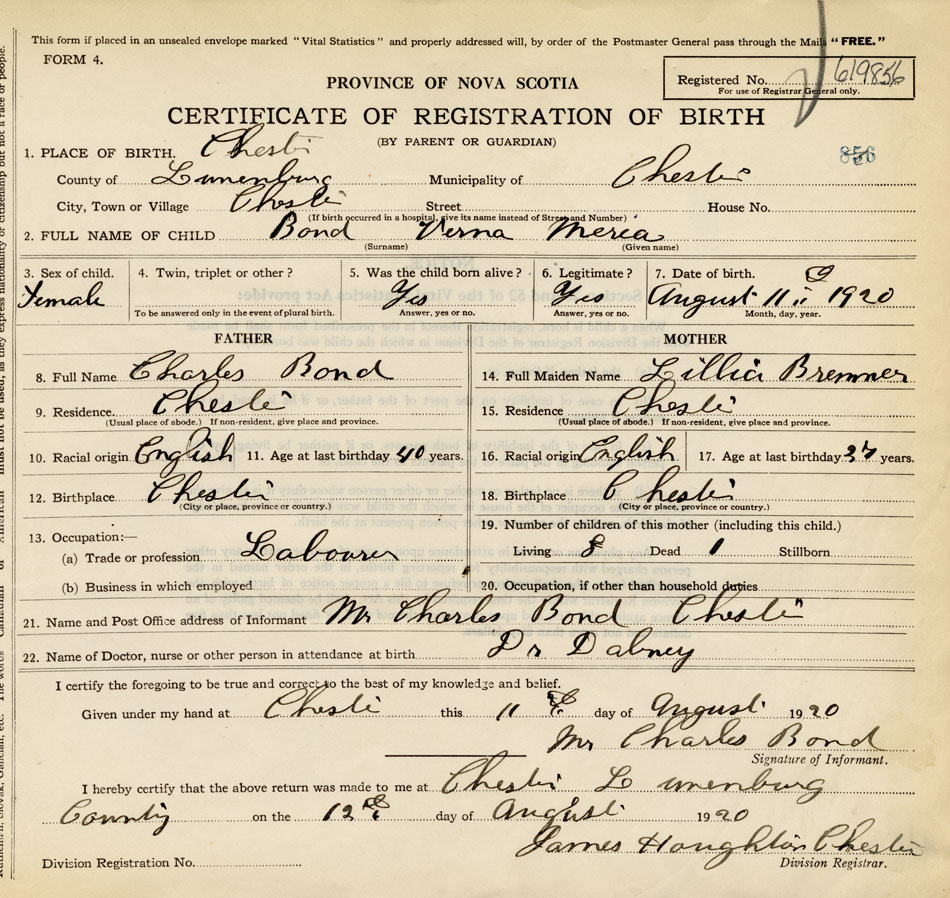 This form if placed in an unsealed envelope marked "Vital Statistics" and properly addressed will, by order of the Postmaster General pass through the Mails "FREE."
FORM 4.
Registered No. 619856
For use of Registrar General only.
PROVINCE OF NOVA SCOTIA
CERTIFICATE OF REGISTRATION OF BIRTH
(BY PARENT OR GUARDIAN)
856
1. PLACE OF BIRTH. Chester
County of Lunenburg Municipality of Chester
City, Town or Village Chester Street House No.
(If birth occurred in a hospital, give its name instead of Street and Number)
2. FULL NAME OF CHILD Bond Verna Merea
(Surname) (Given name)
3. Sex of child. 4. Twin, triplet or other? 5. Was the child born alive? 6. Legitimate? 7. Date of birth.
Female Yes Yes August 11 1920
To be answered only in the event of plural birth. Answer, yes or no. Answer, yes or no. Month, day, year.
FATHER
8. Full Name Charles Bond
9. Residence. Chester
(Usual place of abode.) If non-resident, give place and province.
10. Racial origin English 11. Age at last birthday 40 years.
12. Birthplace Chester
(City or place, province or country.)
13. Occupation:—
(a) Trade or profession Labourer
(b) Business in which employed
MOTHER
14. Full Maiden Name Lillia Bremner
15. Residence Chester
(Usual place of abode.) If non-resident, give place and province.
16. Racial origin English 17. Age at last birthday years.
18. Birthplace Chester
(City or place, province or country.)
19. Number of children of this mother (including this child.)
Living 8 Dead 1 Stillborn
20. Occupation, if other than household duties
21. Name and Post Office address of Informant Mr Charles Bond Chester
22. Name of Doctor, nurse or other person in attendance at birth. Dr Dabney
I certify the foregoing to be true and correct to the best of my knowledge and belief.
Given under my hand at Chester this 11 day of August 1920
Mr Charles Bond
Signature of Informant.
I hereby certify that the above return was made to me at Chester Lunenburg
County on the 12 day of August 1920
James Houghton Chester
Division Registration No. Division Registrar.